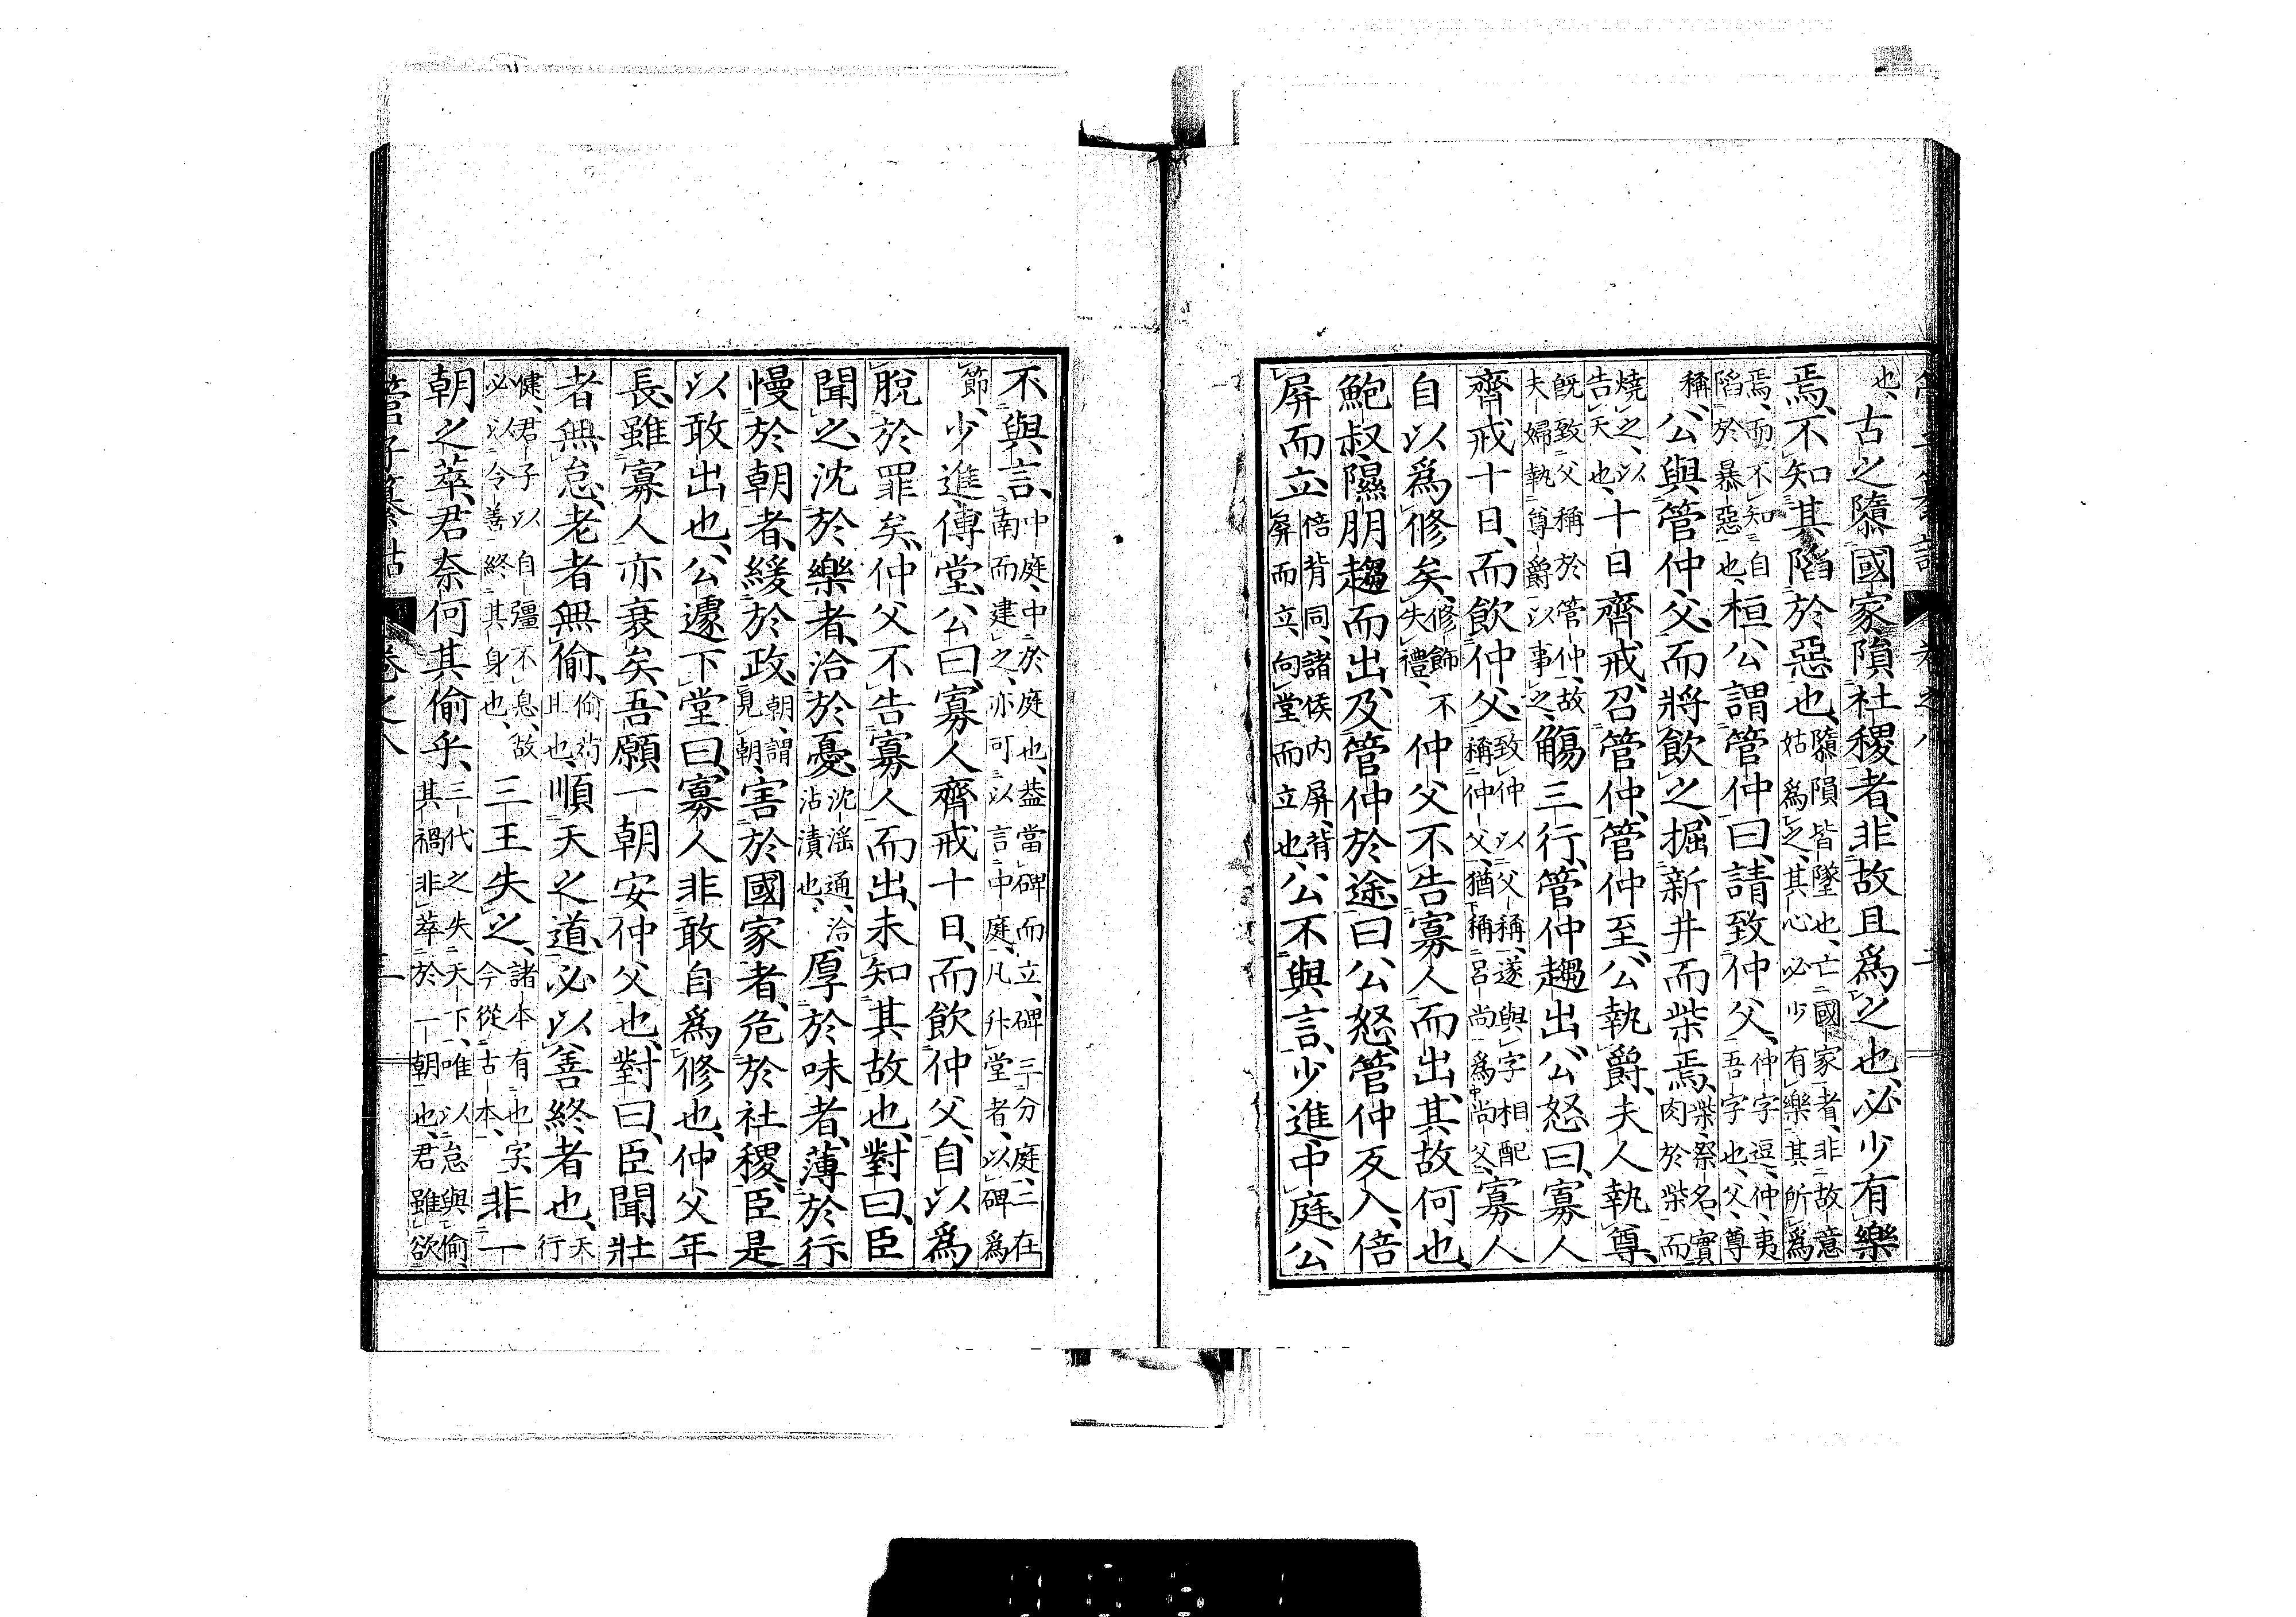 管子纂詁 卷之八 二
也、古之隳國家隕社稷者、非故且爲之也、必少有樂
焉、不知其陷於惡也、隳隕皆墜也、亡國家者、非故意爲之、其心必少有樂其所爲
焉、而不知自陷於暴惡也、桓公謂管仲曰、請致仲父、仲字逗、仲、夷吾字也、父、尊
稱、公與管仲父、而將飲之、掘新井而柴焉、柴、祭名、實肉於柴而
燒之、以告天也、十日齊戒、召管仲、管仲至、公執爵、夫人執尊、
既致父稱於管仲、故夫婦執尊爵以事之、觴三行、管仲趨出、公怒曰、寡人
齊戒十日、而飲仲父、致仲以父稱、遂與字相配稱仲父、猶稱呂尚爲尚父、寡人
自以爲修矣、修飾不失禮、仲父不告寡人而出、其故何也、
鮑叔隰朋趨而出、及管仲於途、曰、公怒、管仲反入、倍
屏而立、倍背同、諸侯內屏、背屏而立、向堂而立也、公不與言、少進中庭、公
不與言、中庭、中於庭也、葢當碑而立、碑三分庭、二在南而建之、亦可以言中庭、凡升堂者、以碑爲
節、少進傅堂、公曰、寡人齊戒十日、而飲仲父、自以爲
脫於罪矣、仲父不告寡人而出、未知其故也、對曰、臣
聞之、沈於樂者、洽於憂、沈、滛通、洽、沾漬也、厚於味者、薄於行、
慢於朝者、緩於政、朝、謂見朝、害於國家者、危於社稷、臣是
以敢出也、公遽下堂曰、寡人非敢自爲修也、仲父年
長、雖寡人亦衰矣、吾願一朝安仲父也、對曰、臣聞壯
者無怠、老者無偷、偷、苟且也、順天之道、必以善終者也、天行
健、君子以自彊不息、故必以令善終其身也、三王失之、諸本有也字、今從古本、非一
朝之萃、君奈何其偷乎、三代之失天下、唯以怠與偷、其禍非萃於一朝也、君雖欲
管子纂詁 卷之八 三